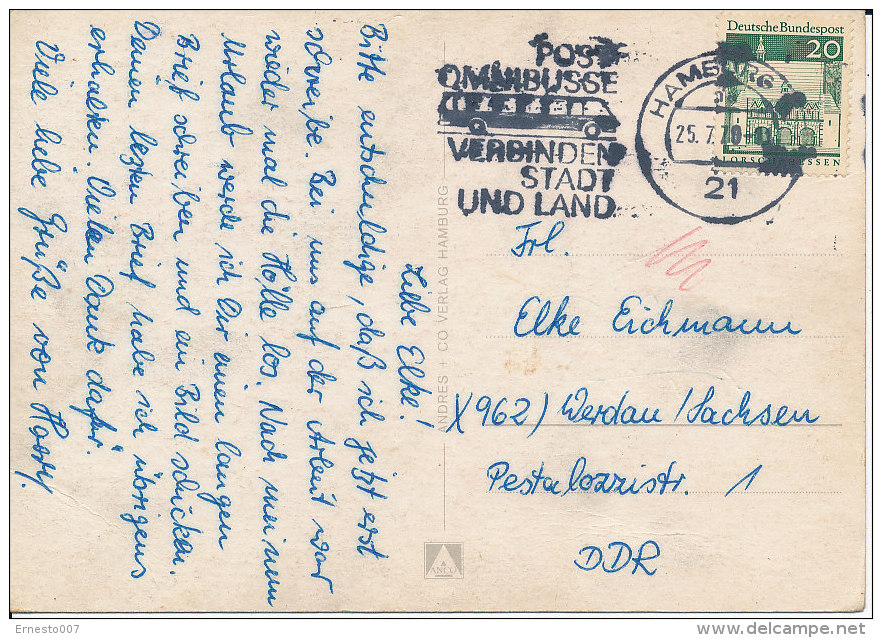 Liebe Elke!
Bitte entschuldige, daß ich jetzt erst
schreibe. Bei uns auf der Arbeit war
wieder mal die Hölle los. Nach meinem
Urlaub werde ich Dir einen langen
Brief schreiben und ein Bild schicken.
Deinen lezten Brief habe ich übrigens
erhalten. Vielen Dank dafür.
Viele liebe Grüße von Harry.
ANDRES + CO. VERLAG HAMBURG
ANCO
POST
OMNIBUSSE
VERBINDEN
STADT
UND LAND
HAMBURG
25.7.70
21
Deutsche Bundespost
20
LORSCH/HESSEN
Frl.
Elke Eichmann
X962) Werdau/Sachsen
Pestalozzistr. 1
DDR
Ernesto007
delcampe.net